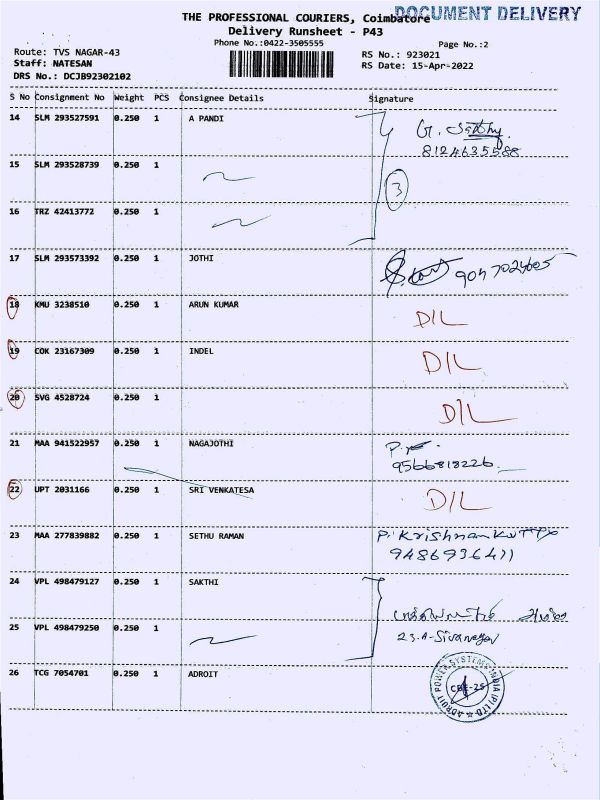 DOCUMENT DELIVERY
THE PROFESSIONAL COURIERS, Coimbatore
Delivery Runsheet - P43
Phone No.:0422-3505555
Page No.:2
Route: TVS NAGAR-43
RS No.: 923021
Staff: NATESAN
RS Date: 15-Apr-2022
DRS No.: DCJB92302102
S No Consignment No Weight PCS Consignee Details Signature
14 SLM 293527591 0.250 1 A PANDI
8124635588
15 SLM 293528739 0.250 1
3
16 TRZ 42413772 0.250 1
17 SLM 293573392 0.250 1 JOTHI
18 KMU 3238510 0.250 1 ARUN KUMAR D/L
19 COK 23167309 0.250 1 INDEL D/L
20 SVG 4528724 0.250 1 D/L
21 MAA 941522957 0.250 1 NAGAJOTHI
9566818226
22 UPT 2031166 0.250 1 SRI VENKATESA D/L
23 MAA 277839882 0.250 1 SETHU RAMAN P. Krishnankutty
9486936411
24 VPL 498479127 0.250 1 SAKTHI
25 VPL 498479250 0.250 1 23-A-Sivanagar
26 TCG 7054701 0.250 1 ADROIT
ADROIT POWER SYSTEMS INDIA (P) LTD
CBE-25